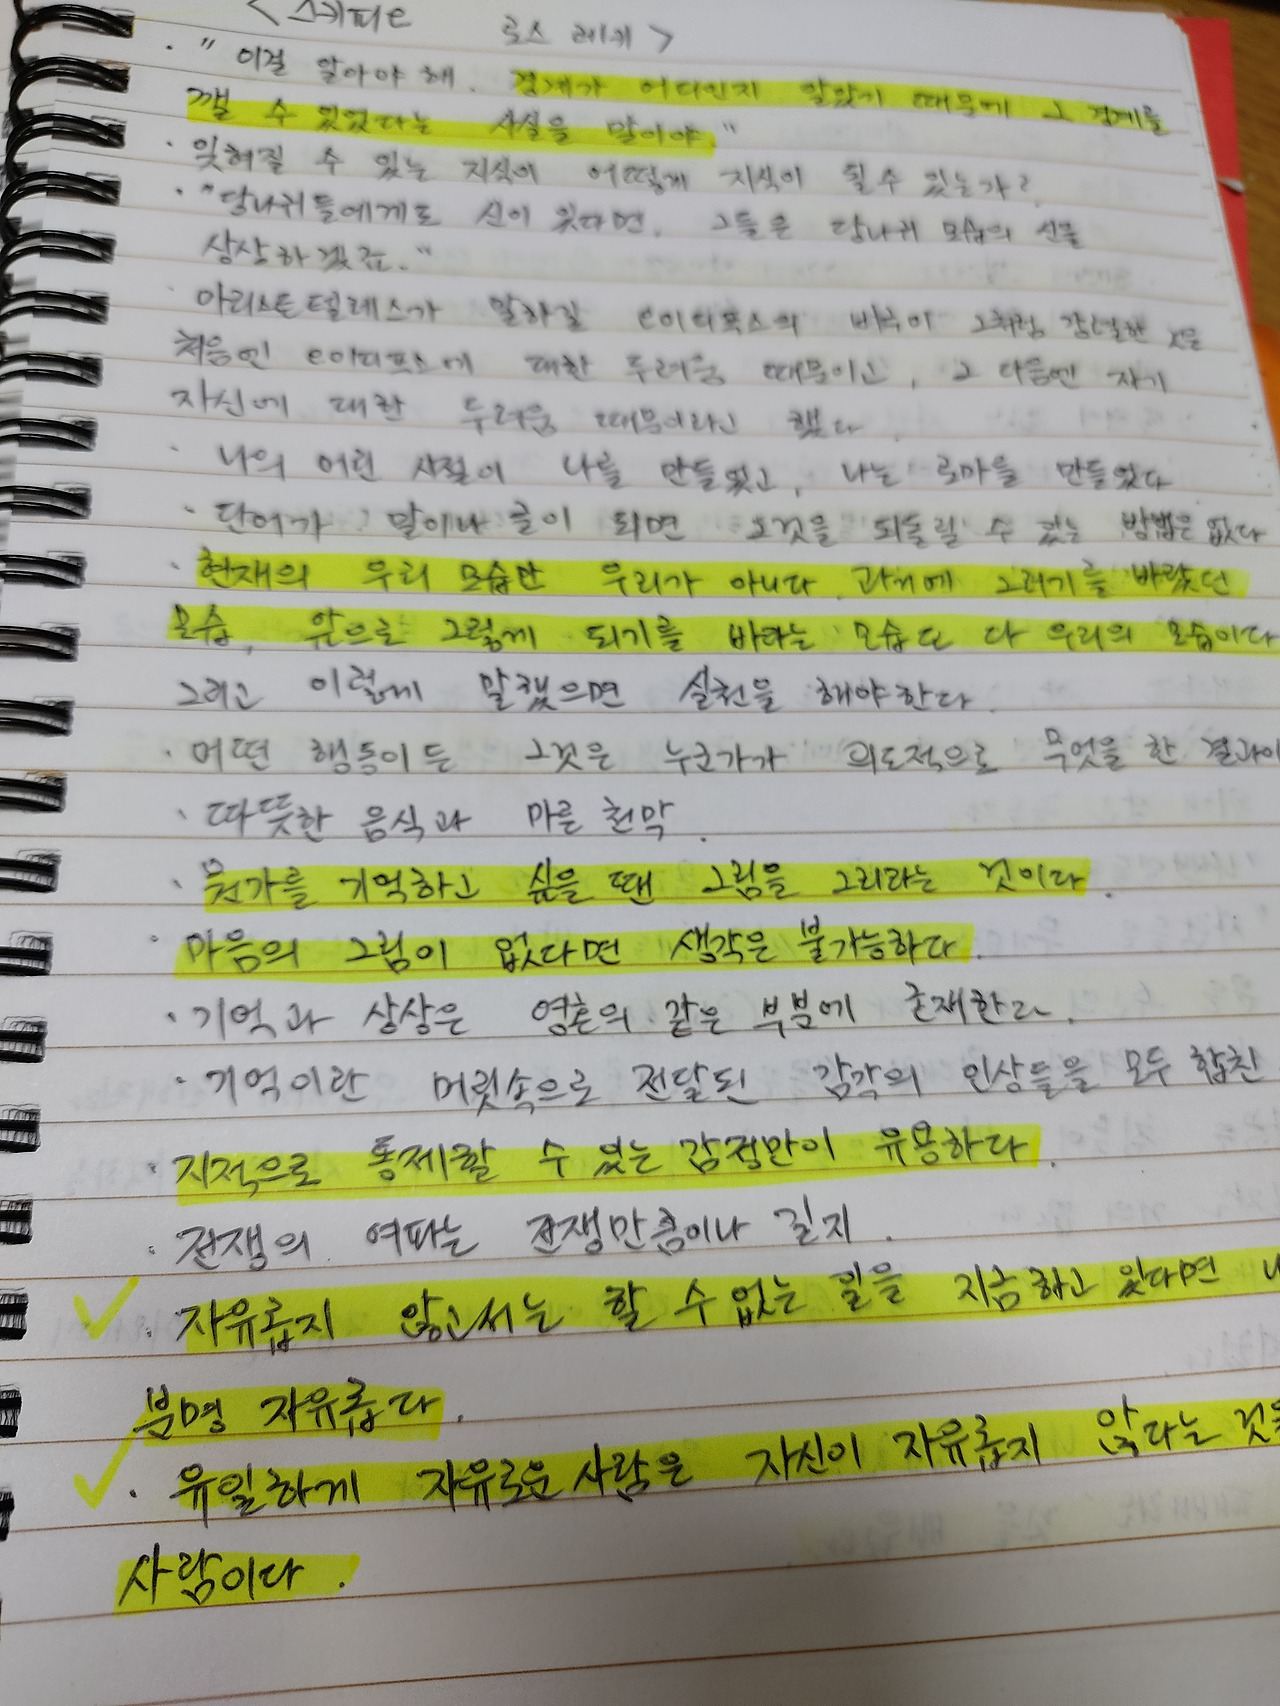 <스키피오 로스 레키>
· "이걸 알아야 해. 경계가 어디인지 알았기 때문에 그 경계를
깰 수 있었다는 사실을 말이야."
· 잊혀질 수 있는 지식이 어떻게 지식이 될 수 있는가?
· "당나귀들에게도 신이 있다면, 그들은 당나귀 모습의 신을
상상하겠죠."
· 아리스토텔레스가 말하길 비극이 그처럼 강렬한 것은
처음엔 에 대한 두려움 때문이고, 그 다음엔 자기
자신에 대한 두려움 때문이라고 했다.
· 나의 어린 시절이 나를 만들었고, 나는 로마를 만들었다
· 단어가 말이나 글이 되면 그것을 되돌릴 수 있는 방법은 없다
· 현재의 우리 모습만 우리가 아니다. 과거에 그러기를 바랐던
모습, 앞으로 그렇게 되기를 바라는 모습도 다 우리의 모습이다
그리고 이렇게 말했으면 실천을 해야한다.
· 어떤 행동이든 그것은 누군가가 의도적으로 무엇을 한 결과이
· 따뜻한 음식과 마른 천막.
· 뭔가를 기억하고 싶을 땐 그림을 그리라는 것이다.
· 마음의 그림이 없다면 생각은 불가능하다.
· 기억과 상상은 영혼의 같은 부분에 존재한다.
· 기억이란 머릿속으로 전달된 감각의 인상들을 모두 합친
· 지적으로 통제할 수 있는 감정만이 유용하다.
· 전쟁의 여파는 전쟁만큼이나 길지.
· 자유롭지 않고서는 할 수 없는 일을 지금 하고 있다면
분명 자유롭다.
· 유일하게 자유로운 사람은 자신이 자유롭지 않다는 것을
사람이다.